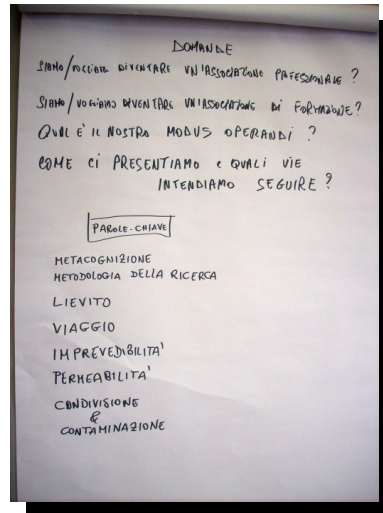 DOMANDE
SIAMO/VOGLIAMO DIVENTARE UN'ASSOCIAZIONE PROFESSIONALE ?
SIAMO/VOGLIAMO DIVENTARE UN'ASSOCIAZIONE DI FORMAZIONE?
QUAL È IL NOSTRO MODUS OPERANDI ?
COME CI PRESENTIAMO E QUALI VIE
INTENDIAMO SEGUIRE ?
PAROLE-CHIAVE
METACOGNIZIONE
METODOLOGIA DELLA RICERCA
LIEVITO
VIAGGIO
IMPREVEDIBILITA'
PERMEABILITA'
CONDIVISIONE
&
CONTAMINAZIONE